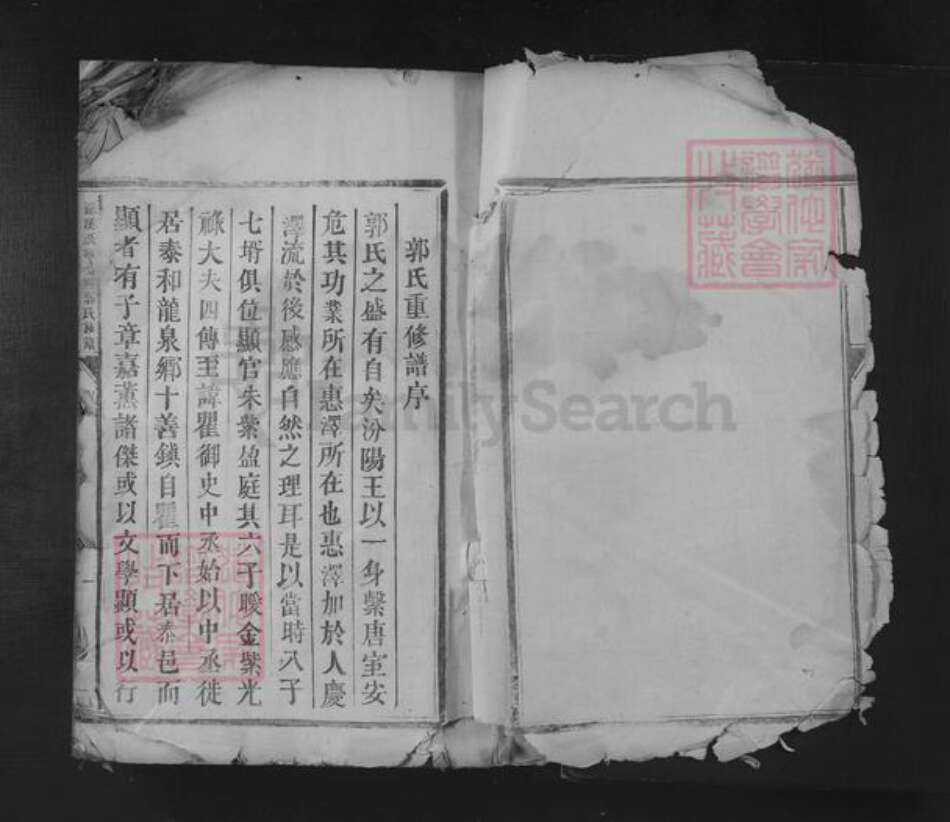 郭氏重修譜序
郭氏之盛有自矣汾陽王以一身繫唐室安
危其功業所在惠澤所在也惠澤加於人慶
澤流於後感應自然之理耳是以當時八子
七壻俱位顯官朱紫盈庭其六子曖金紫光
祿大夫四傳至諱瞿御史中丞始以中丞徙
居泰和龍泉鄉十善鎮自瞿而下居泰邑而
顯者有子章嘉薰諸傑或以文學顯或以行
FamilySearch